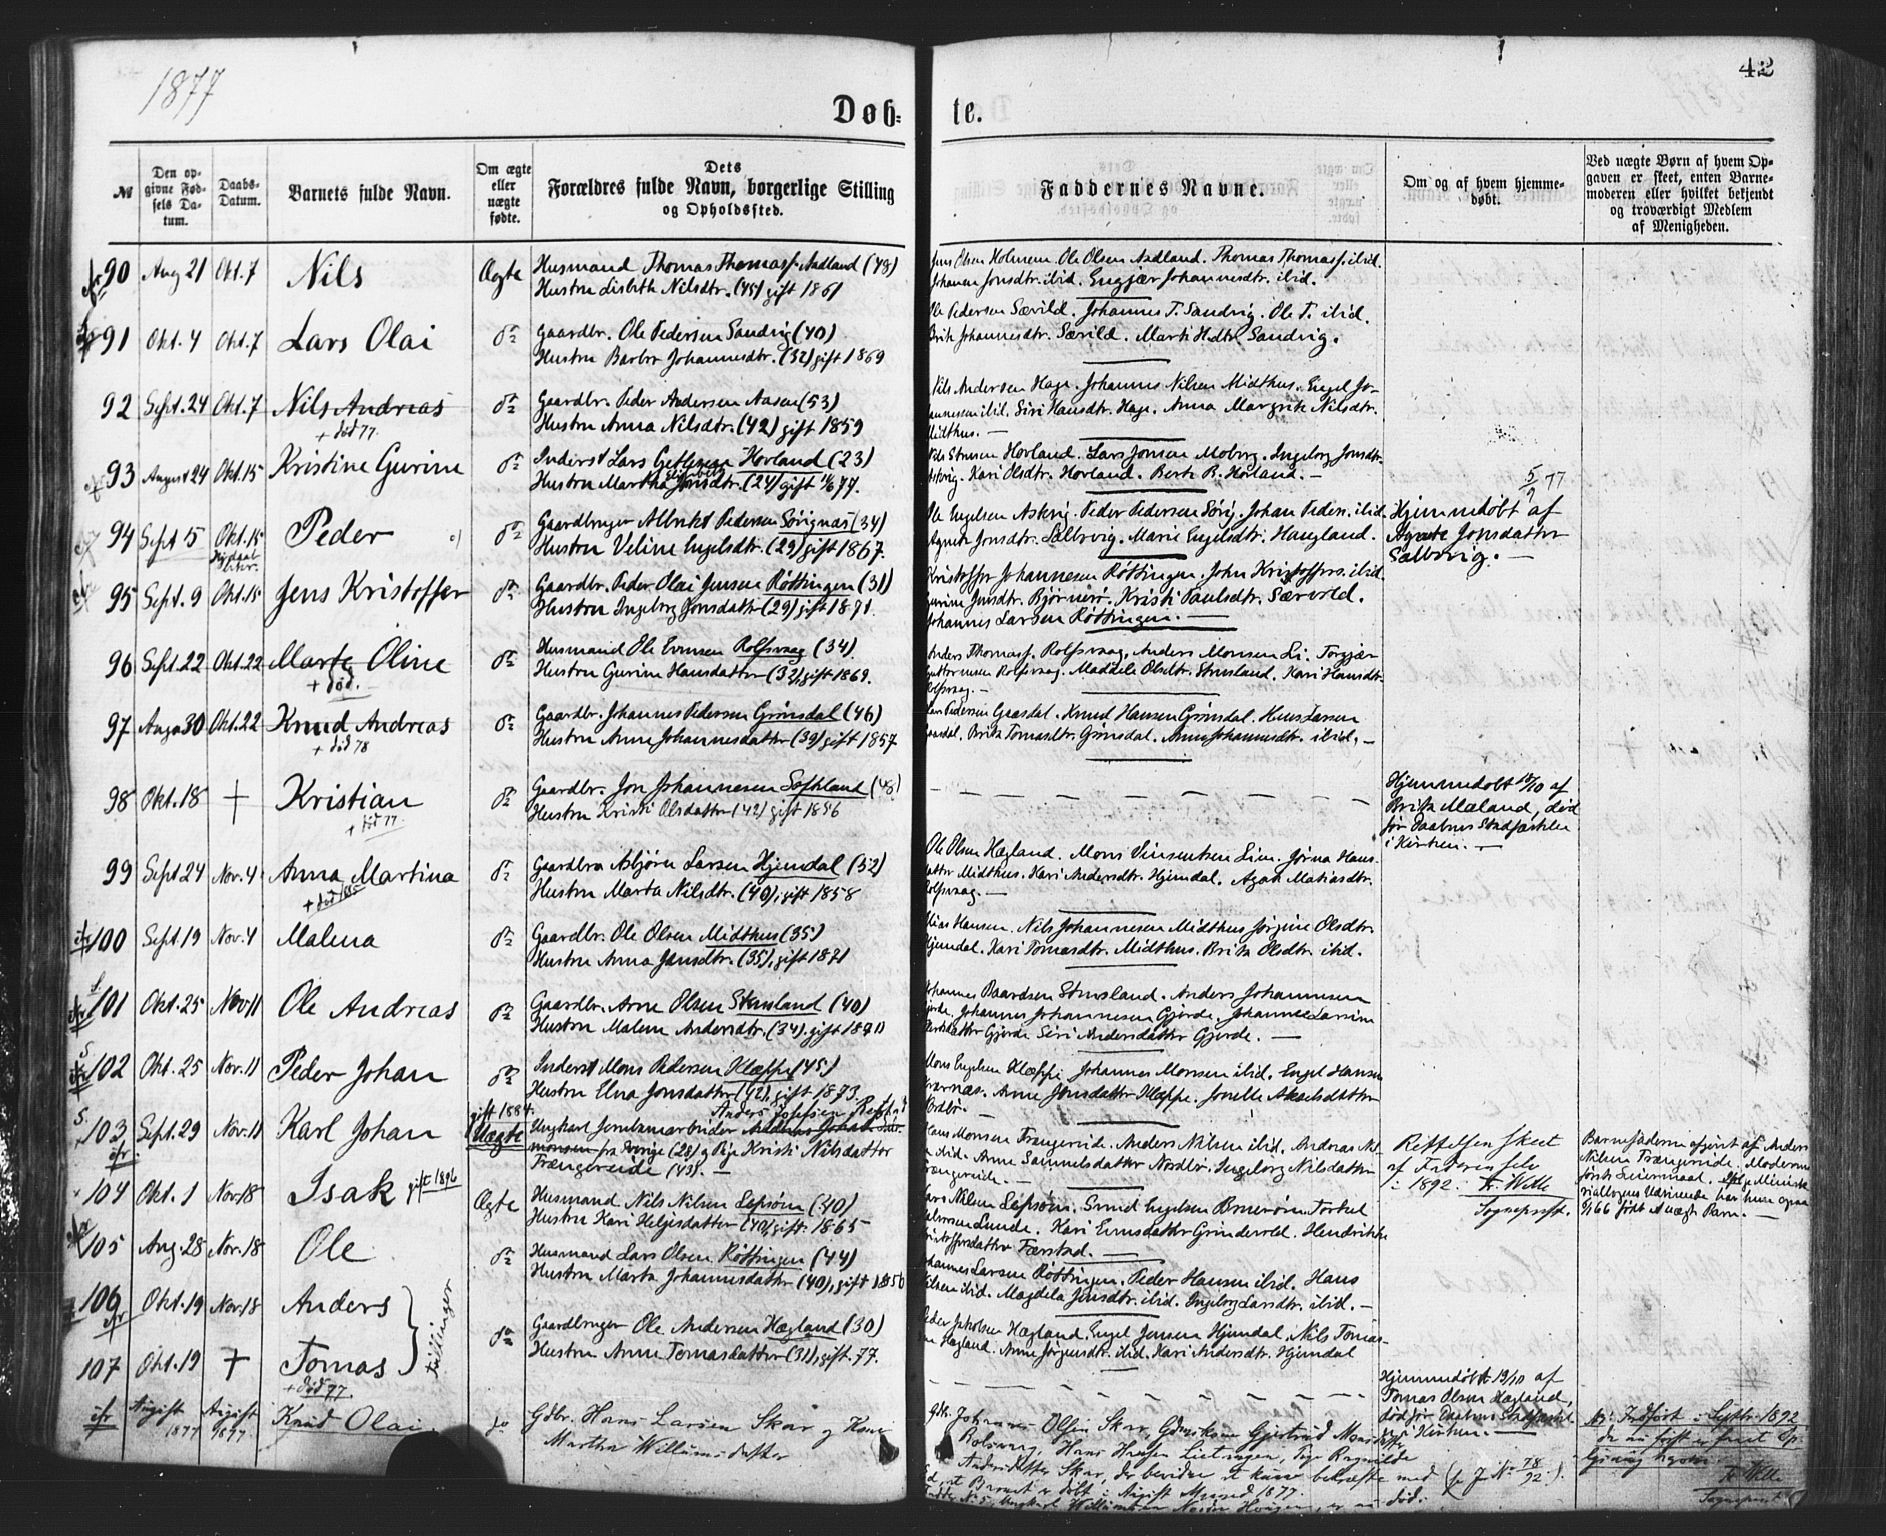 1877
42
Døb-
te.
№
Den opgivne Fødsels Datum.
Daabs-Datum.
Barnets fulde Navn.
Om ægte eller uægte fødte.
Dets Forældres fulde Navn, borgerlige Stilling og Opholdssted.
Faddernes Navne.
Om og af hvem hjemmedøbt.
Ved uægte Børn af hvem Opgaven er skeet, enten Barnemoderen eller hvilket bekjendt og troværdigt Medlem af Menigheden.
90 Aug 21 Okt. 7 Nils Ægte Husmand Thomas Thomass. Aadland (48)
Hustru Lisbeth Nilsdtr. (45) gift 1861
Jens Olsen Holmen. Ole Olsen Aadland. Thomas Thomass. ibid.
Johanna Jonsdtr. ibid. Engjær Johannesdtr. ibid.
91 Okt. 4 Okt. 7 Lars Olai do Gaardbr. Ole Pedersen Sandvig (40)
Hustru Barbro Johannesdtr. (32) gift 1869
Ole Pedersen Særvld. Johannes T. Sandvig. Ole T. ibid.
Brite Johannesdtr. Særvld. Marti Sandvig.
92 Sept. 24 Okt. 7 Nils Andreas do Gaardbr. Peder Andersen Aasen (53)
+ død 77.
Hustru Anna Nilsdtr. (42) gift 1859
Nils Andersen Hage. Johannes Nilsen Midthus. Engel Jo-
hannesen ibid. Siri Hansdtr. Hage. Anna Margrete Nilsdtr.
Midthus.
93 August 24 Okt. 15 Kristine Gurine do Inderst Lars Hovland (23)
Hustru Martha Jonsdtr. (24) gift 77.
Hovland. Lars Jonsen Moberg. Ingeborg Jonsdtr.
Askvig. Kari Olsdtr. Hovland. Berte B. Hovland.
94 Sept 15 Okt. 15 Peder do Gaardbruger Albrikt Pedersen Sørignæs (34)
Hustru Veline Engelsdtr. (29) gift 1867.
Ole Engelsen Askvig. Peder Pedersen Sørig. Johan Peders. ibid.
Agnete Jonsdtr. Salbovig. Marie Engelsdtr. Haugland.
5/9 77
Hjemmedøbt af
Agnete Jonsdatter
Salbovig.
95 Sept. 9 Okt. 15 Jens Kristoffer do Gaardbr. Peder Olai Jensen Røttingen (31)
Hustru Ingeborg Jonsdatter (29) gift 1871.
Kristoffer Johannesen Røttingen. John Kristoffers. ibid.
Gurine Jensdtr. Bjørnerø. Kristi Paulsdtr. Særvold.
Johannes Larsen Røttingen.
96 Sept. 22 Okt. 22 Marte Oline do Husmand Ole Evensen Rolfsvaag (34)
+ død.
Hustru Gurine Hansdatter (32), gift 1869.
Anders Thomass. Rolfsvaag. Anders Monsen Li. Torgjær
Guttormsen Rolfsvaag. Maddele Olsdtr. Strmsland. Kari Hansdtr.
Rolfsvaag.
97 August 30 Okt. 22 Knud Andreas do Gaardbr. Johannes Pedersen Grønsdal (46)
+ død 78
Hustru Anne Johannesdatter (39) gift 1857
Lars Pedersen Gaasdal. Knud Hansen Grønsdal. Hans Larsen
Gaasdal. Brite Tomasdtr. Grønsdal. Anne Johannesdtr. ibid.
98 Okt. 18 + Kristian do Gaardbr. Jon Johannesen Softeland (48)
+ død 77.
Hustru Kristi Olsdatter (42) gift 1856
Hjemmedøbt 18/10 af
Brita Mæland, død
før Daabens Stadfæstelse
i Kirken.
99 Sept 24 Nov. 4 Anna Martina do Gaardbr. Asbjørn Larsen Hjemdal (52)
+ død 1885
Hustru Marta Nilsdtr. (40), gift 1858
Ole Olsen Hægland. Mons Vinsentsen Lien. Jørna Hans-
datter Midthus. Kari Andersdtr. Hjemdal. Agate Matiasdtr.
Rolfsvaag.
100 Sept. 19 Nov. 4 Malena do Gaardbr. Ole Olsen Midthus (35)
Hustru Anna Jonsdtr. (35), gift 1871
Elias Hansen. Nils Johannesen Midthus. Jørgine Olsdtr.
Hjemdal. Kari Tomasdtr. Midthus. Brita Olsdtr. ibid.
101 Okt. 25 Nov 11 Ole Andreas do Gaardbr. Arne Olsen Strmsland (40)
Hustru Malene Andersdtr. (34), gift 1871)
Johannes Baardsen Strmsland. Anders Johannesen
Gjerde. Johannes Johannesen Gjerde. Johannes Larsen
Gjerde Siri Andersdatter Gjerde.
102 Okt. 25 Nov. 11 Peder Johan do Inderst Mons Pedersen Klæppe (45)
Hustru Elna Jonsdatter (42), gift 1873.
Mons Engelsen Klæppe. Johannes Monsen ibid. Engel Hansen
Anne Jonsdatter Klæppe. Jonelle Akselsdatter
Nordbø.
103 Sept. 29 Nov. 11 Karl Johan Uægte
gift 1884.
Anders Josefsen
Ungkarl Jernbanearbeider
fra Sverige (28) og Pige Kristi Nilsdatter
Trængereide (43).
Hans Monsen Trængereide. Anders Nilsen ibid. Andreas Nil-
sen ibid. Anne Samuelsdatter Nordbø. Ingeborg Nilsdatter
Trængereide.
Rettelsen skeet
af Faderen selv
i 1892. Fr. Wille
Sogneprest.
Barnefaderen opgivet af Anders
Nilsen Trængereide. Moderens
første Leiermaal. efter Ministe-
rialbogens Udvisende har hun ogsaa
66 født et uægte Barn.
104 Okt. 1 Nov. 18 Isak gift 1896 Ægte Husmand Nils Nilsen Lepsøen (40)
Hustru Kari Helgesdatter (40), gift 1865
Lars Nilsen Lepsøen. Smid Engelsen Torkel
Lunde. Kari Evensdatter Grindevold. Hendrikke
Kristoffersdatter Færstad.
105 Aug. 28 Nov. 18 Ole do Husmand Lars Olsen Røttingen (44)
Hustru Marta Johannesdatter (40), gift 1856
Johannes Larsen Røttingen. Peder Hansen ibid. Hans
Nilsen ibid. Magdela Jensdtr. ibid. Ingeborg Larsdtr. ibid.
106 Okt. 19 Nov. 18 Anders
tvillinger
do Gaardbruger Ole Andersen Hægland (30)
Hustru Anne Tomasdatter (31), gift 77.
Peder Jakobsen Hægland. Engel Jensen Hjemdal. Nils Tomas-
sen Hægland. Anne Jørgensdtr. ibid. Kari Andersdtr. Hjemdal
107 Okt. 19 + Tomas
+ død 77.
Hjemmedøbt 19/10 af
Tomas Olsen Hægland,
død før Daabens Stadfæstelse
i Kirken.
August 1877 August 1877 Knud Olai do Gdbr. Hans Larsen Skår og Kone
Marthe Willumsdatter
Gdbr. Johannes Olsen Skår, Gdmskone Gjertrud Monsdatter
Bolsvaag, Hans Hansen Lietingen, Pige Ragnilde
Andersdatter Skår, der beviдne at kunne bekræfte med (se J № 78/92).
at Barnet er døbt i August Maaned 1877.
død.
NB: Indført i Septbr. 1892
da nu først er faaet Op-
lysning herom.
Fr. Wille
Sogneprest